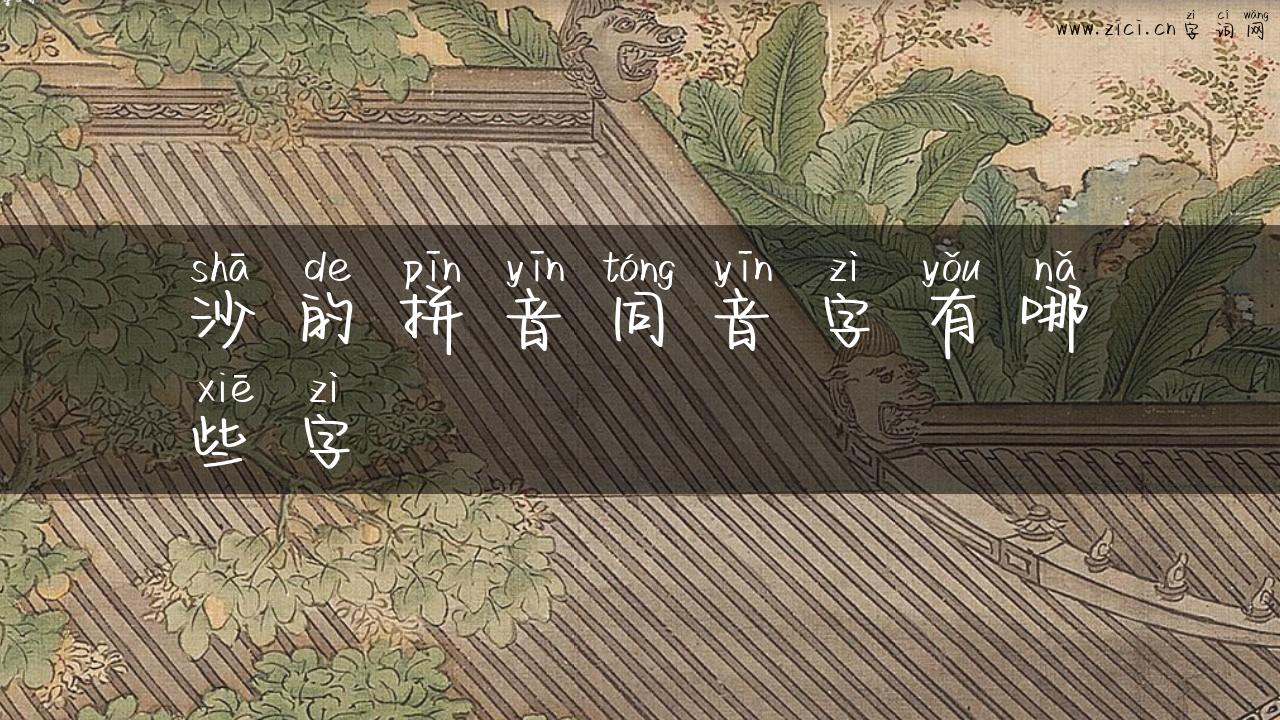 zì cí wǎng
www.zici.cn 字 词 网
shā de pīn yīn tóng yīn zì yǒu nǎ
沙 的 拼 音 同 音 字 有 哪
xiē zì
些 字